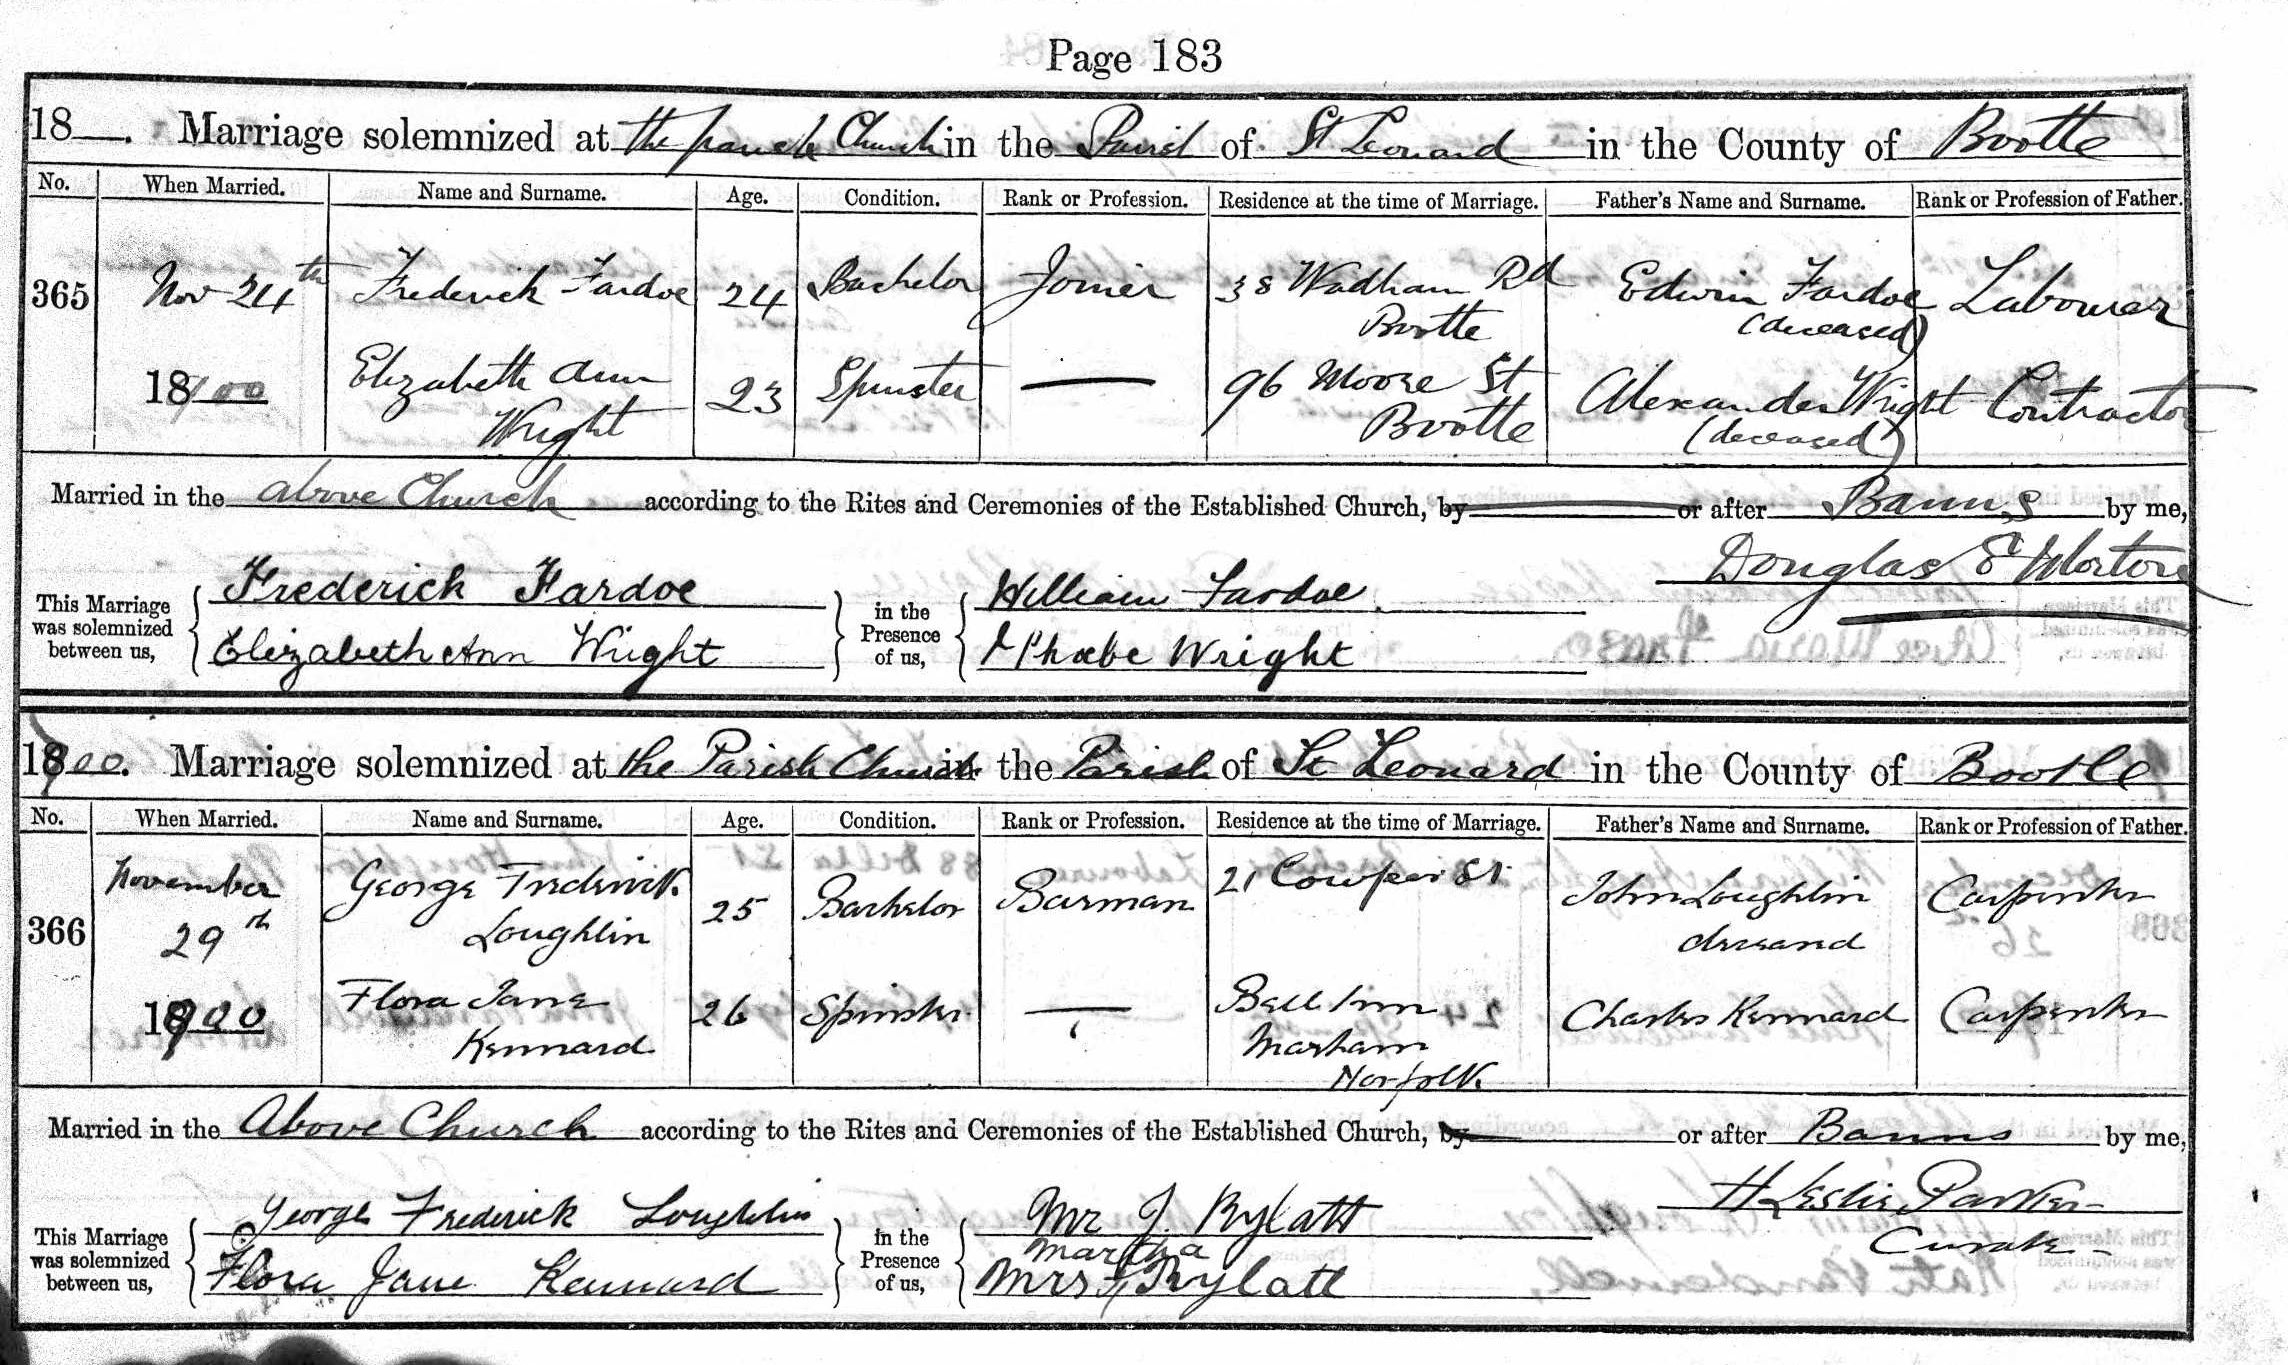 Page 183
18 . Marriage solemnized at the parish Church in the Parish of St Leonard in the County of Bootle
No. When Married. Name and Surname. Age. Condition. Rank or Profession. Residence at the time of Marriage. Father's Name and Surname. Rank or Profession of Father.
365 Nov 24th Frederick Fardoe 24 Bachelor Joiner 38 Wadham Rd Edwin Fardoe Labourer
Bootle (deceased)
1900 Elizabeth Ann 23 Spinster — 96 Moore St Alexander Wright Contractor
Wright Bootle (deceased)
Married in the above Church according to the Rites and Ceremonies of the Established Church, by or after Banns by me,
Douglas E Morton
This Marriage was solemnized between us, Frederick Fardoe in the Presence of us, William Fardoe.
Elizabeth Ann Wright Phoebe Wright
1900. Marriage solemnized at the Parish Church in the Parish of St Leonard in the County of Bootle
No. When Married. Name and Surname. Age. Condition. Rank or Profession. Residence at the time of Marriage. Father's Name and Surname. Rank or Profession of Father.
366 November George Frederick 25 Bachelor Barman 21 Cowper St. John Loughlin Carpenter
29th Loughlin deceased
1900 Flora Jane 26 Spinster — Bell Inn Charles Kennard Carpenter
Kennard Marham
Norfolk
Married in the Above Church according to the Rites and Ceremonies of the Established Church, by or after Banns by me,
H Leslie Parker
Curate
This Marriage was solemnized between us, George Frederick Loughlin in the Presence of us, Mr J. Rylatt
Martha
Flora Jane Kennard Mrs Rylatt